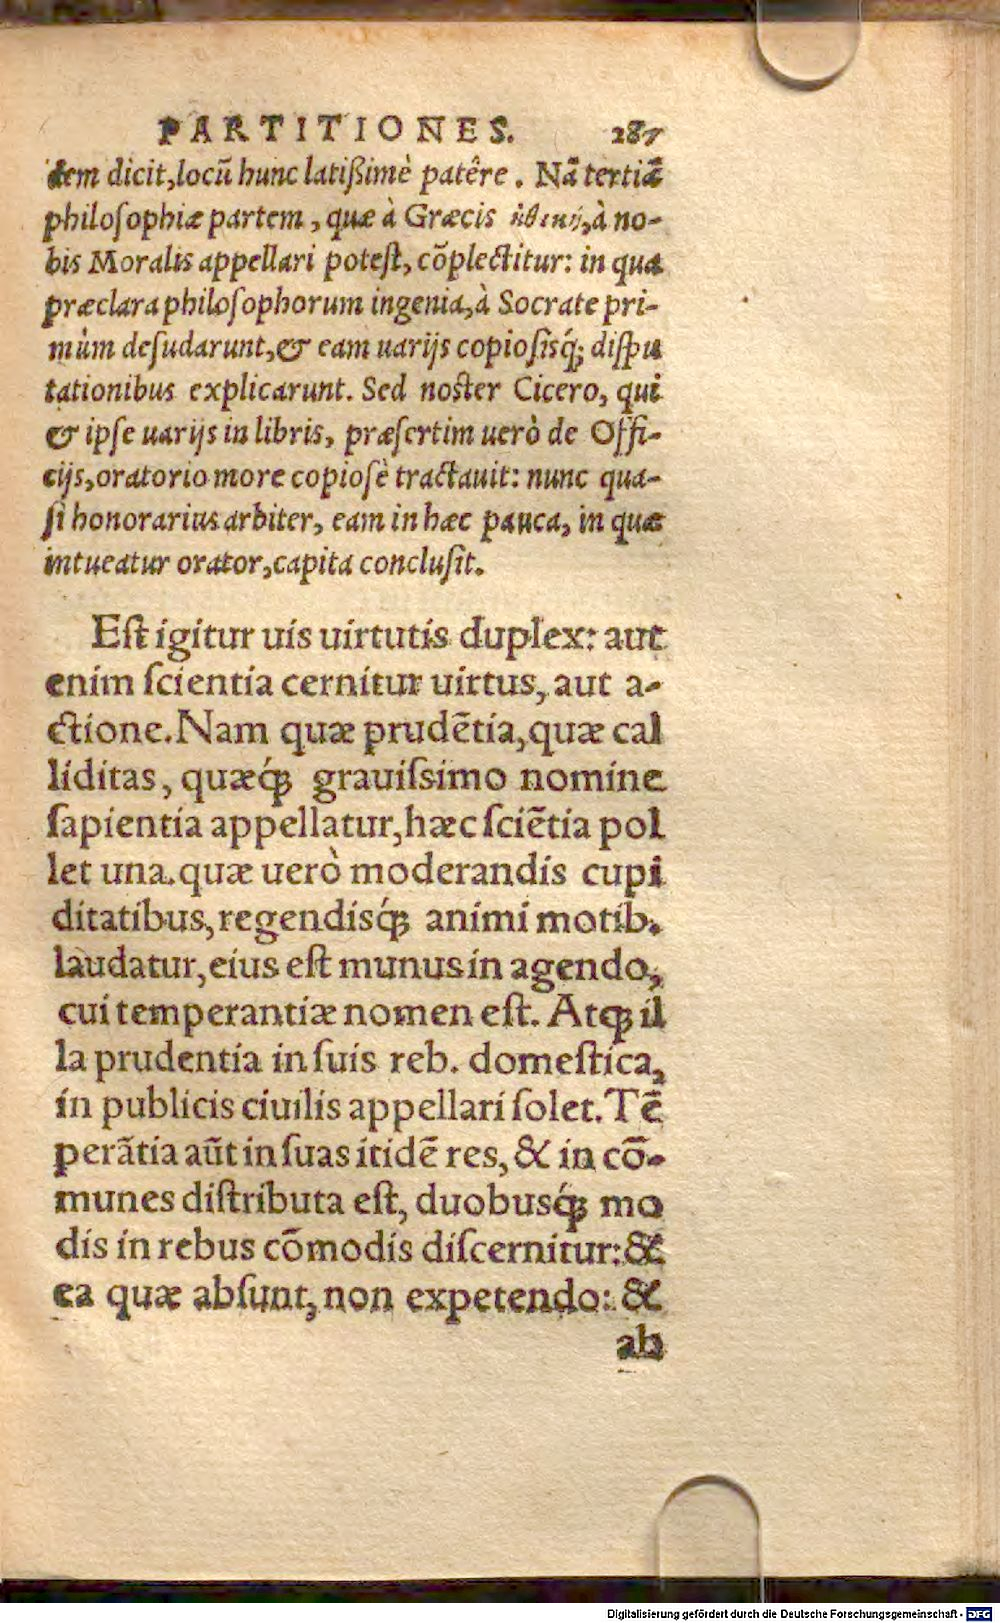 PARTITIONES. 287
dem dicit, locū hunc latißimè patêre. Nā tertiā
philosophiæ partem, quæ à Græcis ἠθικὴ, à no-
bis Moralis appellari potest, cōplectitur: in qua
præclara philosophorum ingenia, à Socrate pri-
mùm desudarunt, & eam uarijs copiosisq́; dispu
tationibus explicarunt. Sed noster Cicero, qui
& ipse uarijs in libris, præsertim uerò de Offi-
cijs, oratorio more copiosè tractauit: nunc qua-
si honorarius arbiter, eam in hæc pauca, in quæ
intueatur orator, capita conclusit.
Est igitur uis uirtutis duplex: aut
enim scientia cernitur uirtus, aut a-
ctione. Nam quæ prudētia, quæ cal
liditas, quæq́; grauissimo nomine
sapientia appellatur, hæc sciētia pol
let una. quæ uerò moderandis cupi
ditatibus, regendisq́; animi motib.
laudatur, eius est munus in agendo,
cui temperantiæ nomen est. Atq; il
la prudentia in suis reb. domestica,
in publicis ciuilis appellari solet. Tē
perātia aūt in suas itidē res, & in cō-
munes distributa est, duobusq́; mo
dis in rebus cōmodis discernitur: &
ea quæ absunt, non expetendo: &
ab
Digitalisierung gefördert durch die Deutsche Forschungsgemeinschaft - DFG